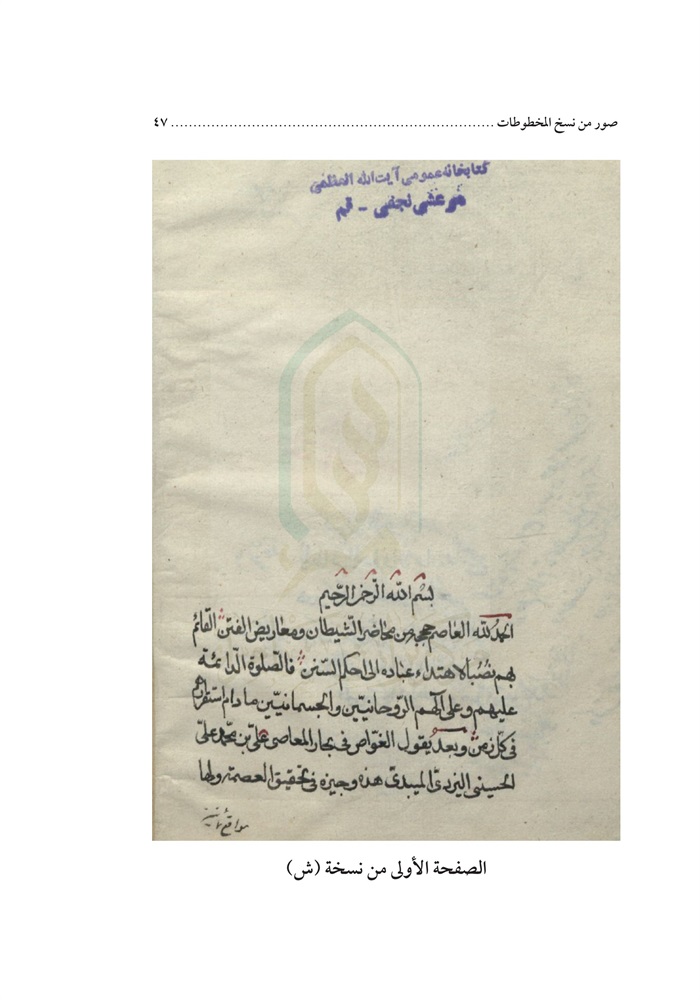 صور من نسخ المخطوطات ........................................................................ ٤٧
كتابخانه عمومى آيت الله العظمى
مرعشى نجفى - قم
بسم الله الرّحمن الرّحيم
الحمد لله العاصم حججه من محاضر الشّيطان ومعاريض الفتن القائم
بهم نصُبًا لاهتداء عباده الى احكم السّنن فالصّلوة الدائمة
عليهم وعلى آلهم الرّوحانيّين والجسمانيّين ما دام استقرارهم
فى كلّ زمن وبعد يقول الغوّاص فى بحار المعاصى علىّ بن محمّد علىّ
الحسينى اليزدىّ الميبدىّ هذه وجيزه فى تحقيق العصمة ولها
مواقع
الصفحة الأولى من نسخة (ش)